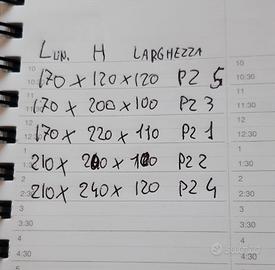 LUN. H LARGHEZZA
10 10
10:30 170 x 120 x 120 PZ 5 10:30
11 11
170 x 200 x 100 PZ 3 11:30
12 12
170 x 220 x 110 PZ 1 12:30
1 1
210 x 200 x 100 PZ 2 1:30
2 2
210 x 240 x 120 PZ 4
3 3
3:30 3:30
4 4
4:30 4:30
subito